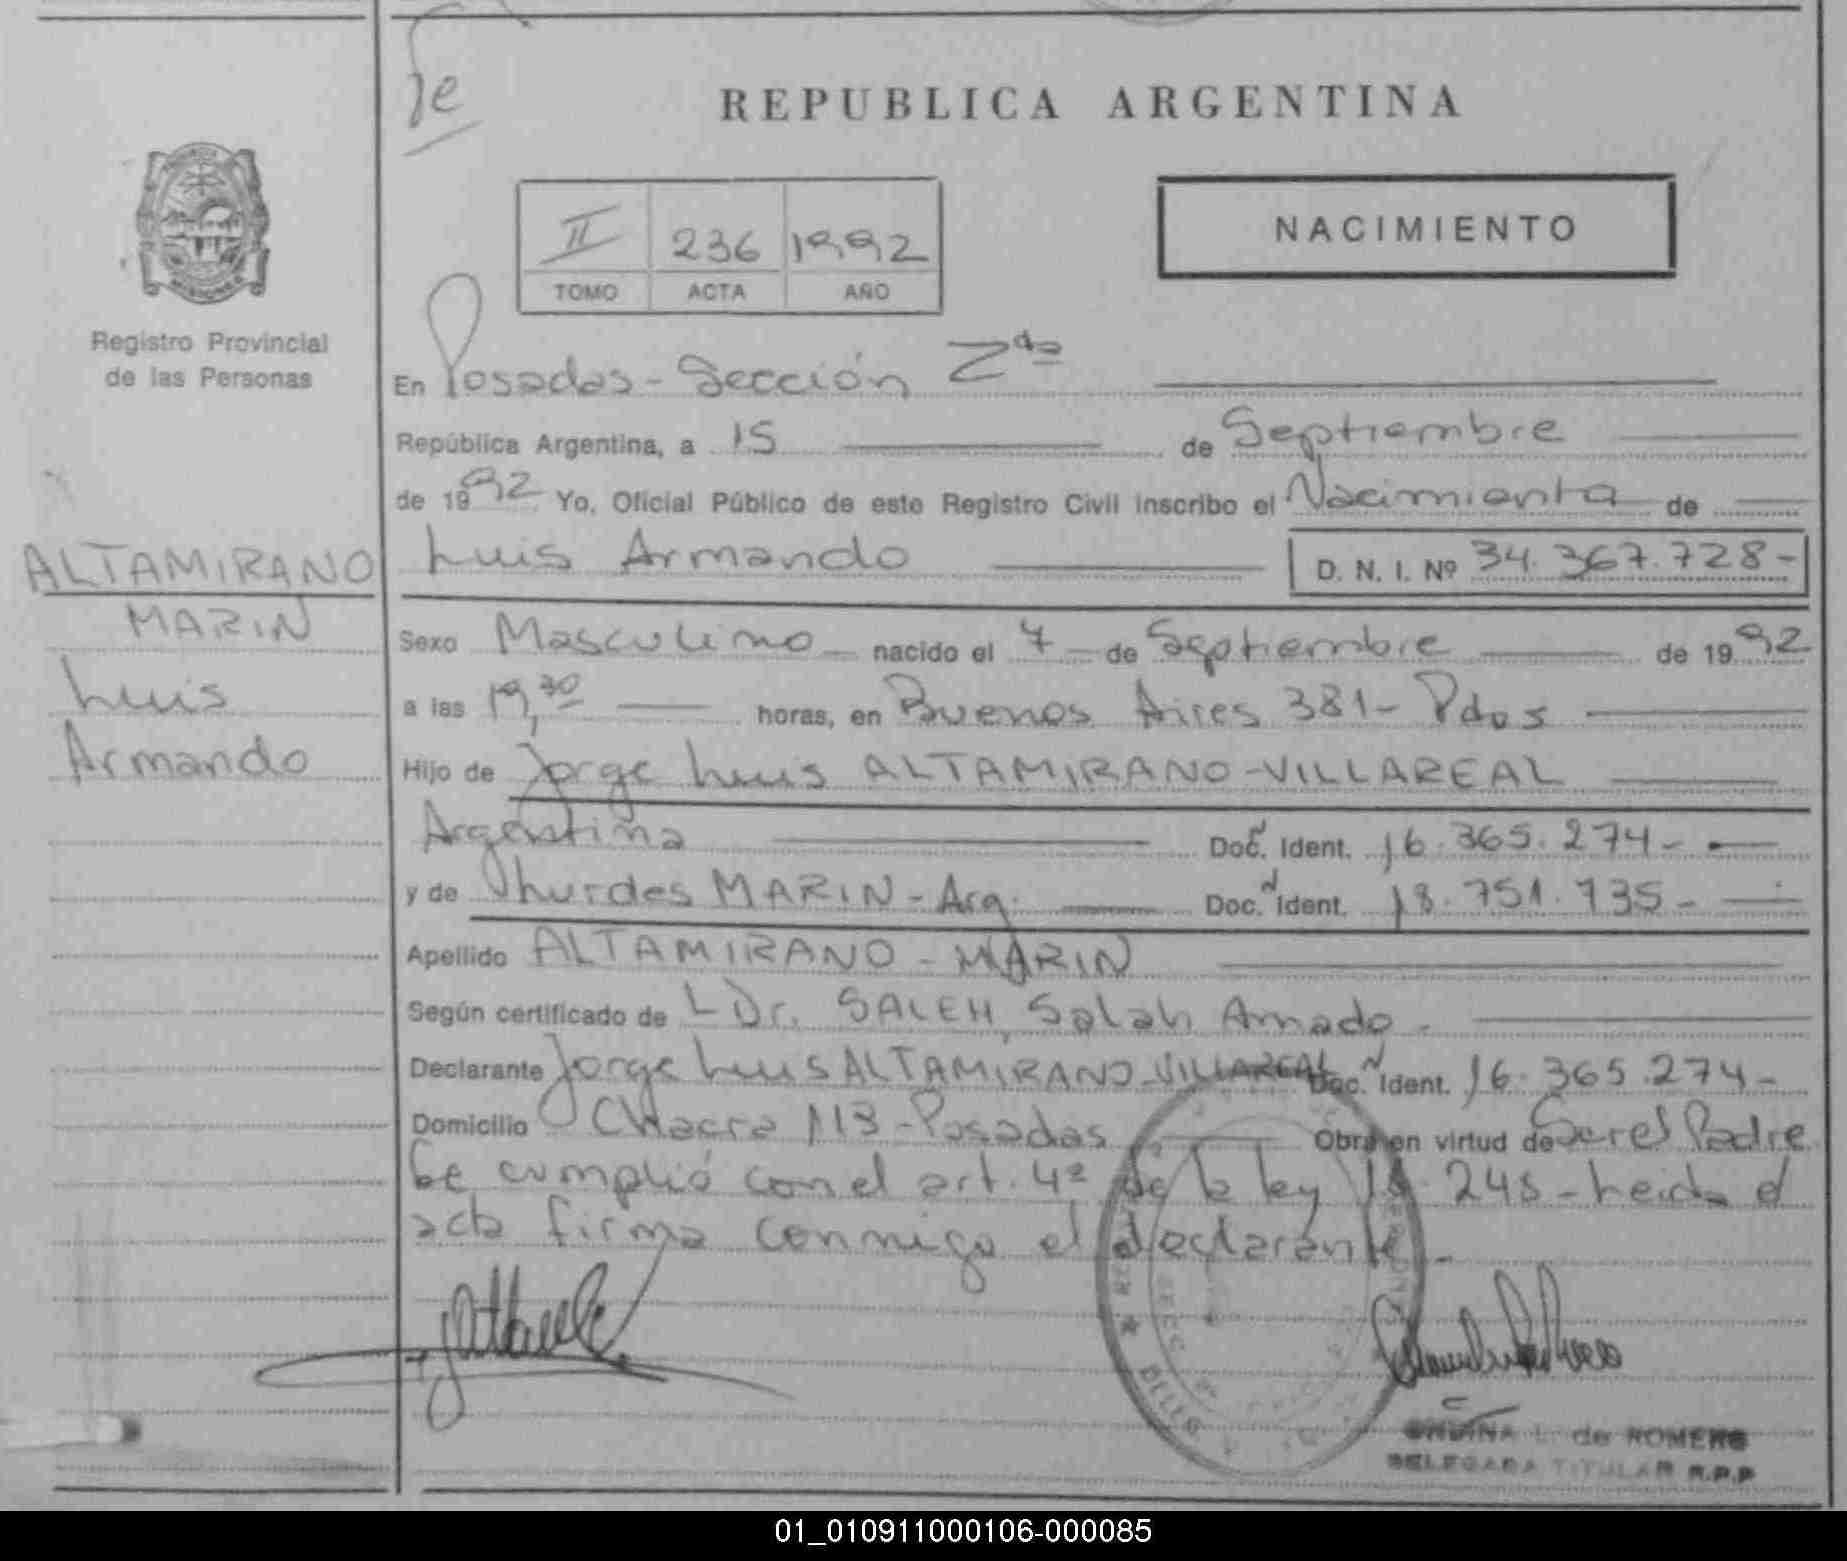 Te
REPUBLICA ARGENTINA
NACIMIENTO
II 236 1992
TOMO ACTA AÑO
MISIONES
Registro Provincial
de las Personas
En Posadas - Sección 2da
República Argentina, a 15 de Septiembre
de 1992 Yo, Oficial Público de este Registro Civil inscribo el Nacimiento de
Luis Armando D. N. I. Nº 34.367.728-
ALTAMIRANO
MARIN
Luis
Armando
Sexo Masculino nacido el 7 de Septiembre de 1992
a las 19,30 horas, en Buenos Aires 381 - Pdas
Hijo de Jorge Luis ALTAMIRANO-VILLAREAL
Argentina Doc. Ident. 16.365.274-
y de Lurdes MARIN - Arg. Doc. Ident. 18.751.735-
Apellido ALTAMIRANO - MARIN
Según certificado de L Dr. SALEH, Salah Amado.
Declarante Jorge Luis ALTAMIRANO-VILLAREAL Doc. Ident. 16.365.274-
Domicilio Chacra 113 - Posadas Obra en virtud de Ser el Padre
Se cumplió con el art. 4º de la ley 18.248 - Leida el
acta firma conmigo el declarante -
L. de ROMERO
DELEGADA TITULAR R.P.P
01_010911000106-000085